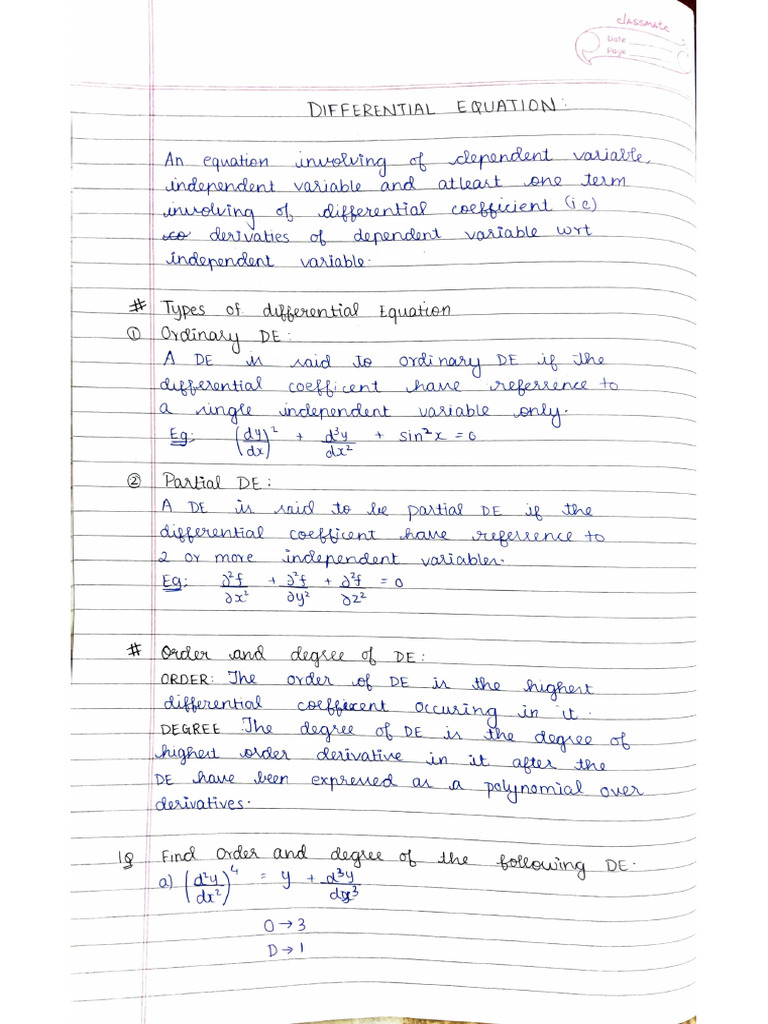 classmate
Date
Page
DIFFERENTIAL EQUATION:
An equation involving of dependent variable,
independent variable and atleast one term
involving of differential coefficient (i e)
derivaties of dependent variable wrt
independent variable.
# Types of differential Equation
① Ordinary DE:
A DE is said to ordinary DE if the
differential coefficent have referrence to
a single independent variable only.
Eg: (dy/dx)² + d³y/dx² + sin²x = 0
② Partial DE:
A DE is said to be partial DE if the
differential coefficent have referrence to
2 or more independent variables.
Eg: ∂²f/∂x² + ∂²f/∂y² + ∂²f/∂z² = 0
# Order and degree of DE:
ORDER: The order of DE is the highest
differential coefficent occuring in it.
DEGREE: The degree of DE is the degree of
highest order derivative in it after the
DE have been expressed as a polynomial over
derivatives.
1Q Find order and degree of the following DE:
a) (d²y/dx²)⁴ = y + d³y/dx³
O → 3
D → 1